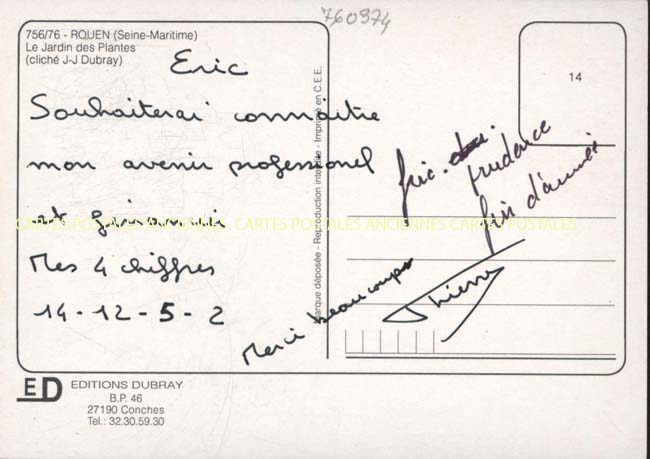 760974
756/76 - ROUEN (Seine-Maritime)
Le Jardin des Plantes
(cliché J-J Dubray)
Eric
Souhaiterai connaitre
mon avenir professionnel
et financier
Mes 4 chiffres
14 - 12 - 5 - 2
Merci beaucoup
Marque déposée - Reproduction interdite - Imprimé en C.E.E.
14
fric. prudence
fin d'année
Thierry
CARTES POSTALES ANCIENNES CARTES POSTALES ANCIENNES CARTES POSTALES
ED EDITIONS DUBRAY
B.P. 46
27190 Conches
Tel.: 32.30.59.30